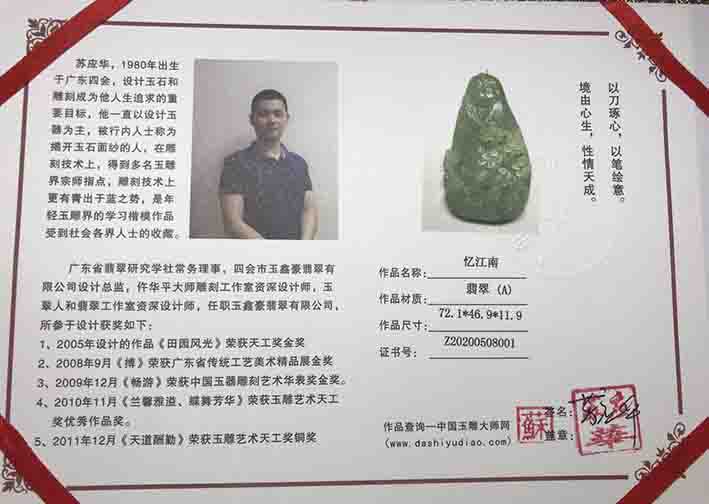 苏应华，1980年出生
于广东四会，设计玉石和
雕刻成为他人生追求的重
要目标，他一直以设计玉
器为主，被行内人士称为
揭开玉石面纱的人，在雕
刻技术上，得到多名玉雕
界宗师指点，雕刻技术上
更有青出于蓝之势，是年
轻玉雕界的学习楷模作品
受到社会各界人士的收藏。
广东省翡翠研究学社常务理事，四会市玉鑫豪翡翠有
限公司设计总监，仵华平大师雕刻工作室资深设计师，玉
翠人和翡翠工作室资深设计师，任职玉鑫豪翡翠有限公司，
所参于设计获奖如下：
1、2005年设计的作品《田园风光》荣获天工奖金奖
2、2008年9月《搏》荣获广东省传统工艺美术精品展金奖
3、2009年12月《畅游》荣获中国玉器雕刻艺术华表奖金奖。
4、2010年11月《兰馨雅溢、蝶舞芳华》荣获玉雕艺术天工
奖优秀作品奖。
5、2011年12月《天道酬勤》荣获玉雕艺术天工奖铜奖
以刀琢心，以笔绘意。
境由心生，性情天成。
作品名称：忆江南
作品材质：翡翠 (A)
作品尺寸：72.1*46.9*11.9
证书号：Z20200508001
作品查询一中国玉雕大师网
(www.dashiyudiao.com)
蘇
签名：
盖章：